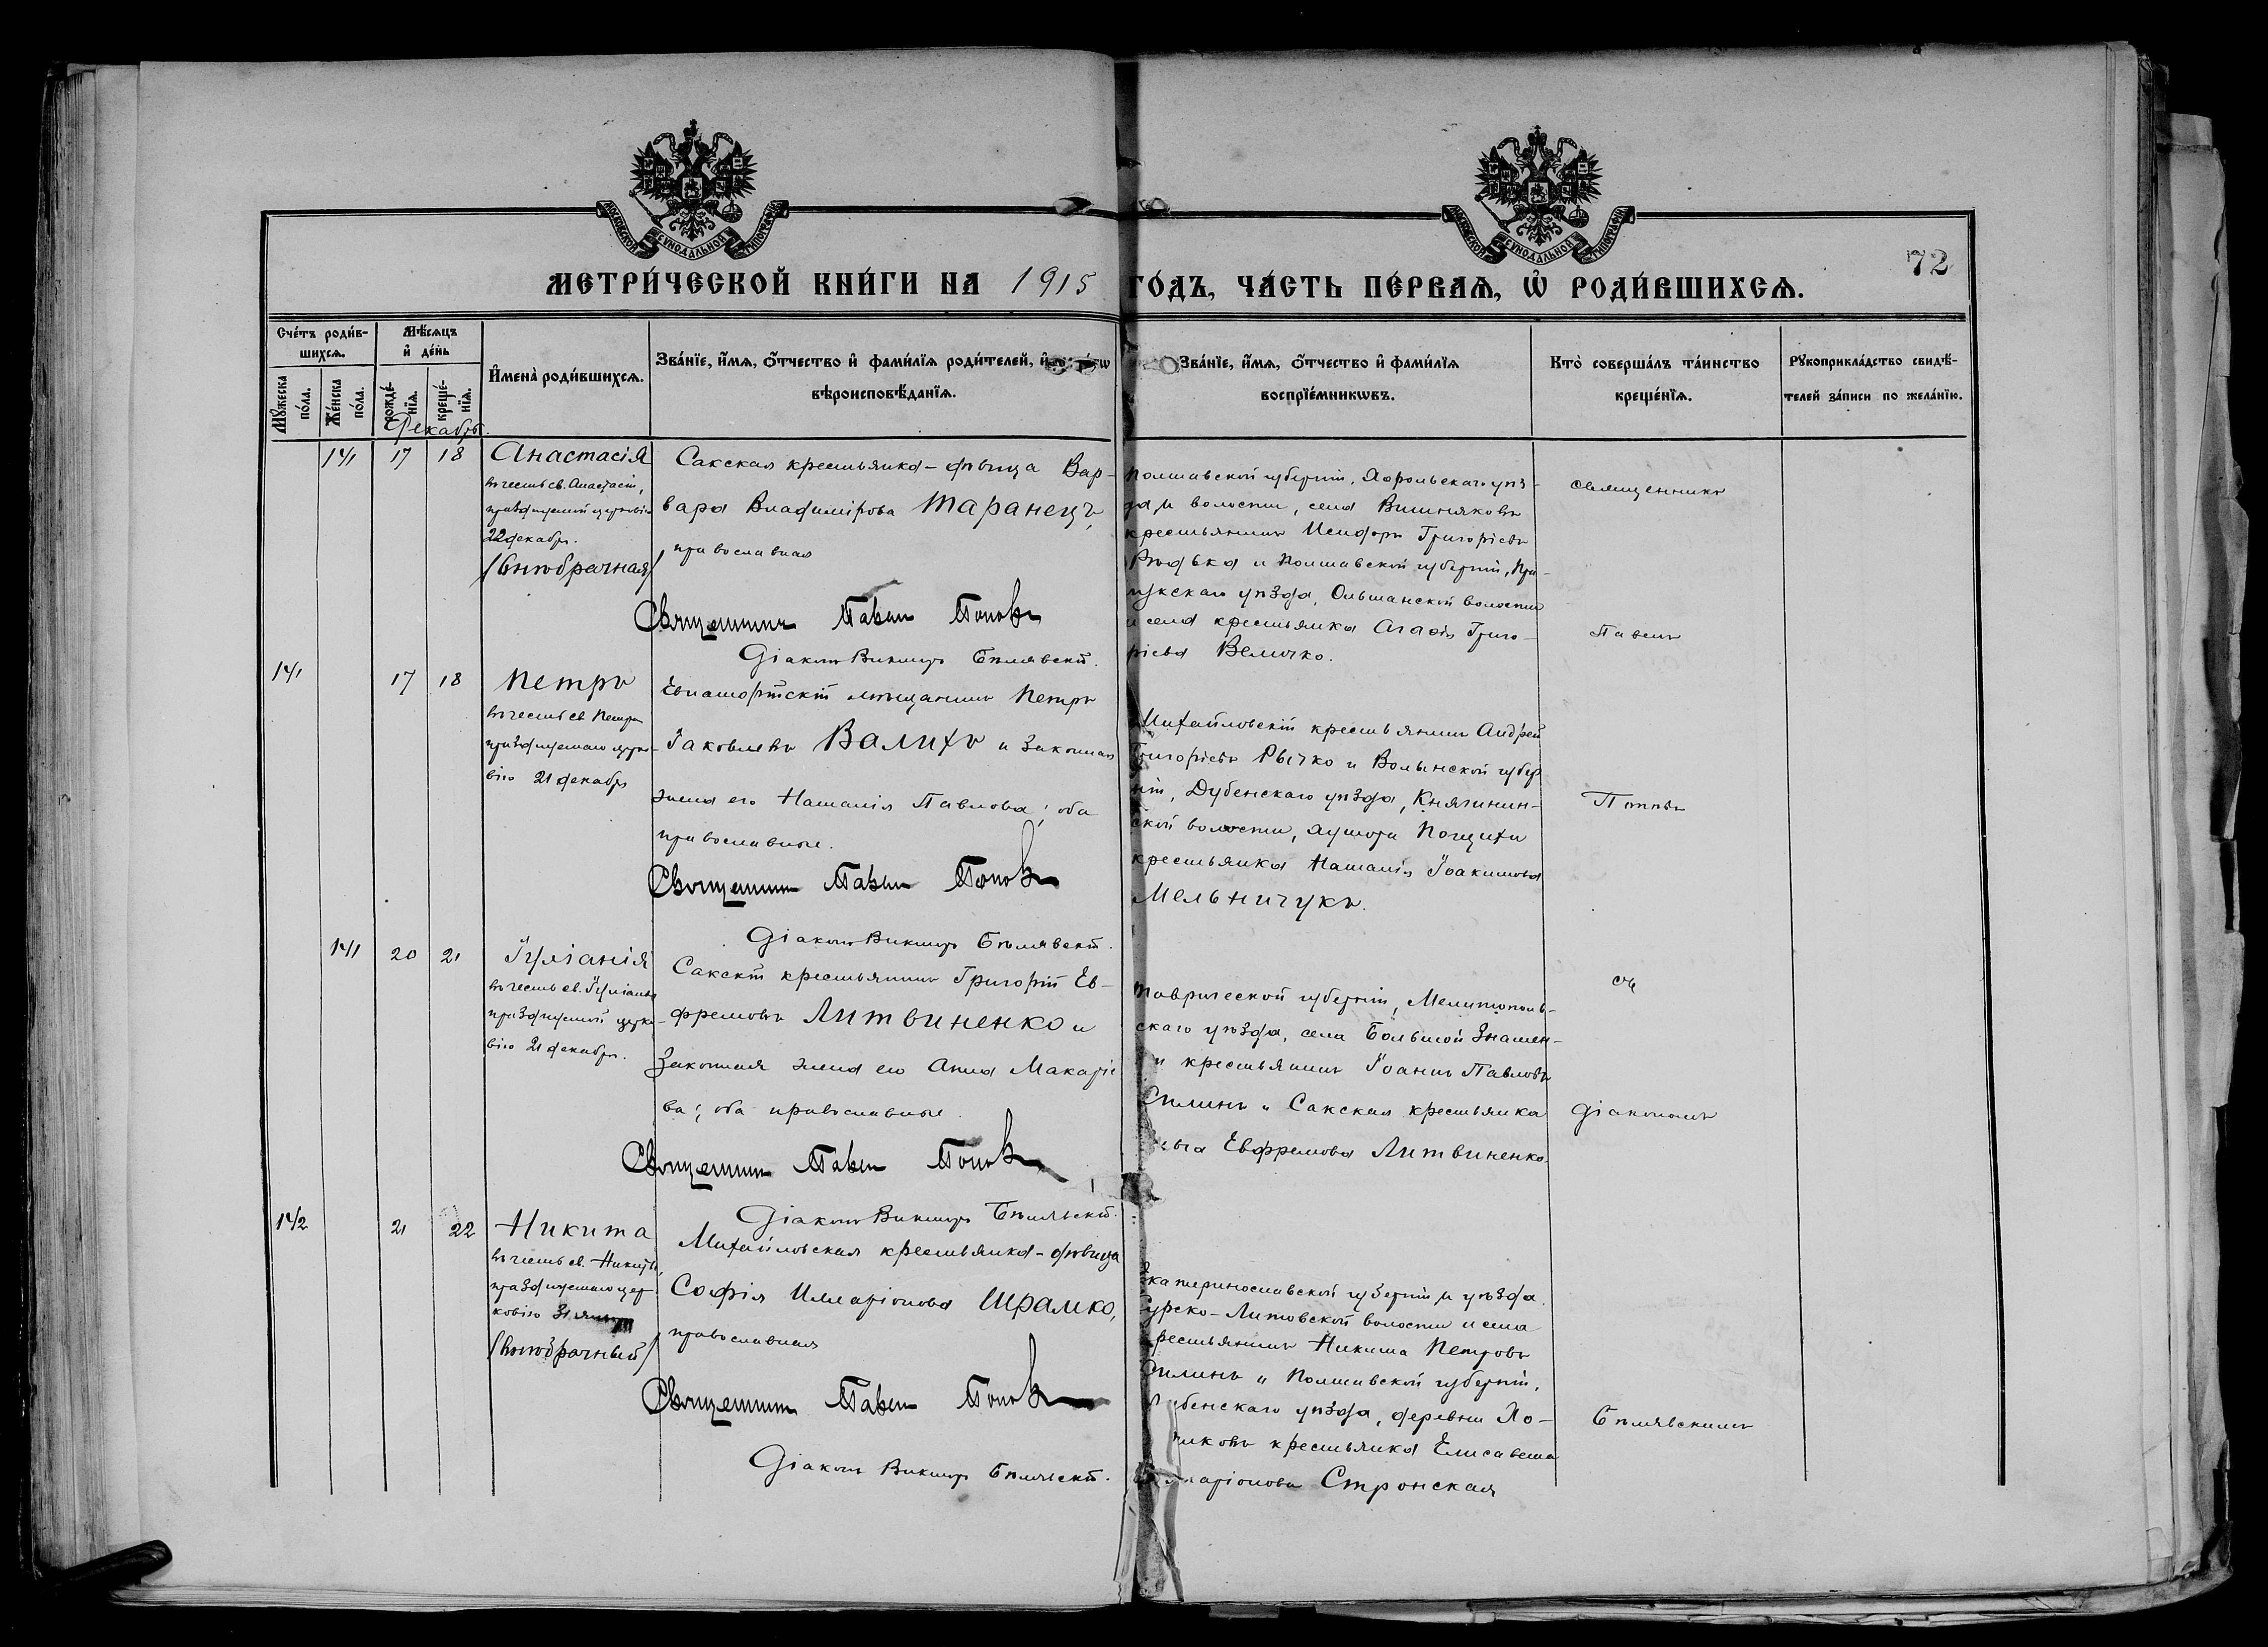 МОСКОВСКОЙ СѴНОДАЛЬНОЙ ТИПОГРАФІИ
МОСКОВСКОЙ СѴНОДАЛЬНОЙ ТИПОГРАФІИ
72
МЕТРИ́ЧЕСКОЙ КНИ́ГИ НА 1915 ГО́ДЪ, ЧА́СТЬ ПЕ́РВАЯ, Ѡ҆ РОДИ́ВШИХСЯ.
Сче́тъ роди́в-
шихся.
Мꙋ́жеска по́ла.
Же́нска по́ла.
Мѣ́сяцъ
и҆ де́нь
рожде́-
нїя.
креще́-
нїя.
И҆мена̀ роди́вшихся.
Зва́нїе, и҆́мя, ѻ҆́тчество и҆ фами́лїя роди́телей, и҆
вѣроисповѣ́данїя.
Зва́нїе, и҆́мя, ѻ҆́тчество и҆ фами́лїя
воспрїе́мникѡвъ.
Кто̀ соверша́лъ та́инство
креще́нїя.
Рꙋкоприкла́дство свидѣ́-
телей за́писи по жела́нїю.
Декабрь.
141 17 18
Анастасія
въ честь св. Анастасіи,
празднуемой церковію
22 декабря.
/внѣбрачная/
Сакская крестьянка-дѣвица Вар-
вара Владимірова Таранецъ,
православная
Священникъ Павелъ Поповъ
Діаконъ Викторъ Бѣлявскій.
Полтавской губерніи, Хорольскаго уѣз-
да, и волости, села Вишняковъ
крестьянинъ Исидоръ Григорьевъ
Рѣдька и Полтавской губерніи, При-
лукскаго уѣзда, Ольшанской волости
и села крестьянка Агафія Григо-
рьева Величко.
священникъ
Павелъ
141 17 18
Петръ
въ честь св. Петра
празднуемаго церко-
вію 21 декабря
Евпаторійскій мѣщанинъ Петръ
Іаковлевъ Валихъ и законная
жена его Наталія Павлова; оба
православные.
Священникъ Павелъ Поповъ
Діаконъ Викторъ Бѣлявскій.
Михайловскій крестьянинъ Андрей
Григорьевъ Рычко и Волынской губер
ніи, Дубенскаго уѣзда, Княгинин-
ской волости, хутора
крестьянка Наталія Іоакимова
Мельничукъ.
Поповъ
141 20 21
Іуліанія
въ честь св. Іуліаніи
празднуемой церко-
вію 21 декабря.
Сакскій крестьянинъ Григорій Ев-
фремовъ Литвиненко и
законная жена его Анна Макаріе
ва; оба православные.
Священникъ Павелъ Поповъ
Діаконъ Викторъ Бѣлявскій.
Таврической губерніи, Мелитополь-
скаго уѣзда, села Большой Знамен-
ки крестьянинъ Іоаннъ Павловъ
и Сакская крестьянка
Евфремова Литвиненко.
съ
Діакономъ
142 21 22
Никита
въ честь св. Никиты,
празднуемаго цер-
ковію 31 янв
/внѣбрачный/
Михайловская крестьянка-дѣвица
Софія Илларіонова Шрамко,
православная
Священникъ Павелъ Поповъ
Діаконъ Викторъ Бѣлявскій.
Екатеринославской губерніи и уѣзда
Сурско-Литовской волости и села
крестьянинъ Никита Петровъ
и Полтавской губерніи,
Лубенскаго уѣзда, деревни Хо-
крестьянка Елисавета
Илларіонова Стронская
Бѣлявскимъ